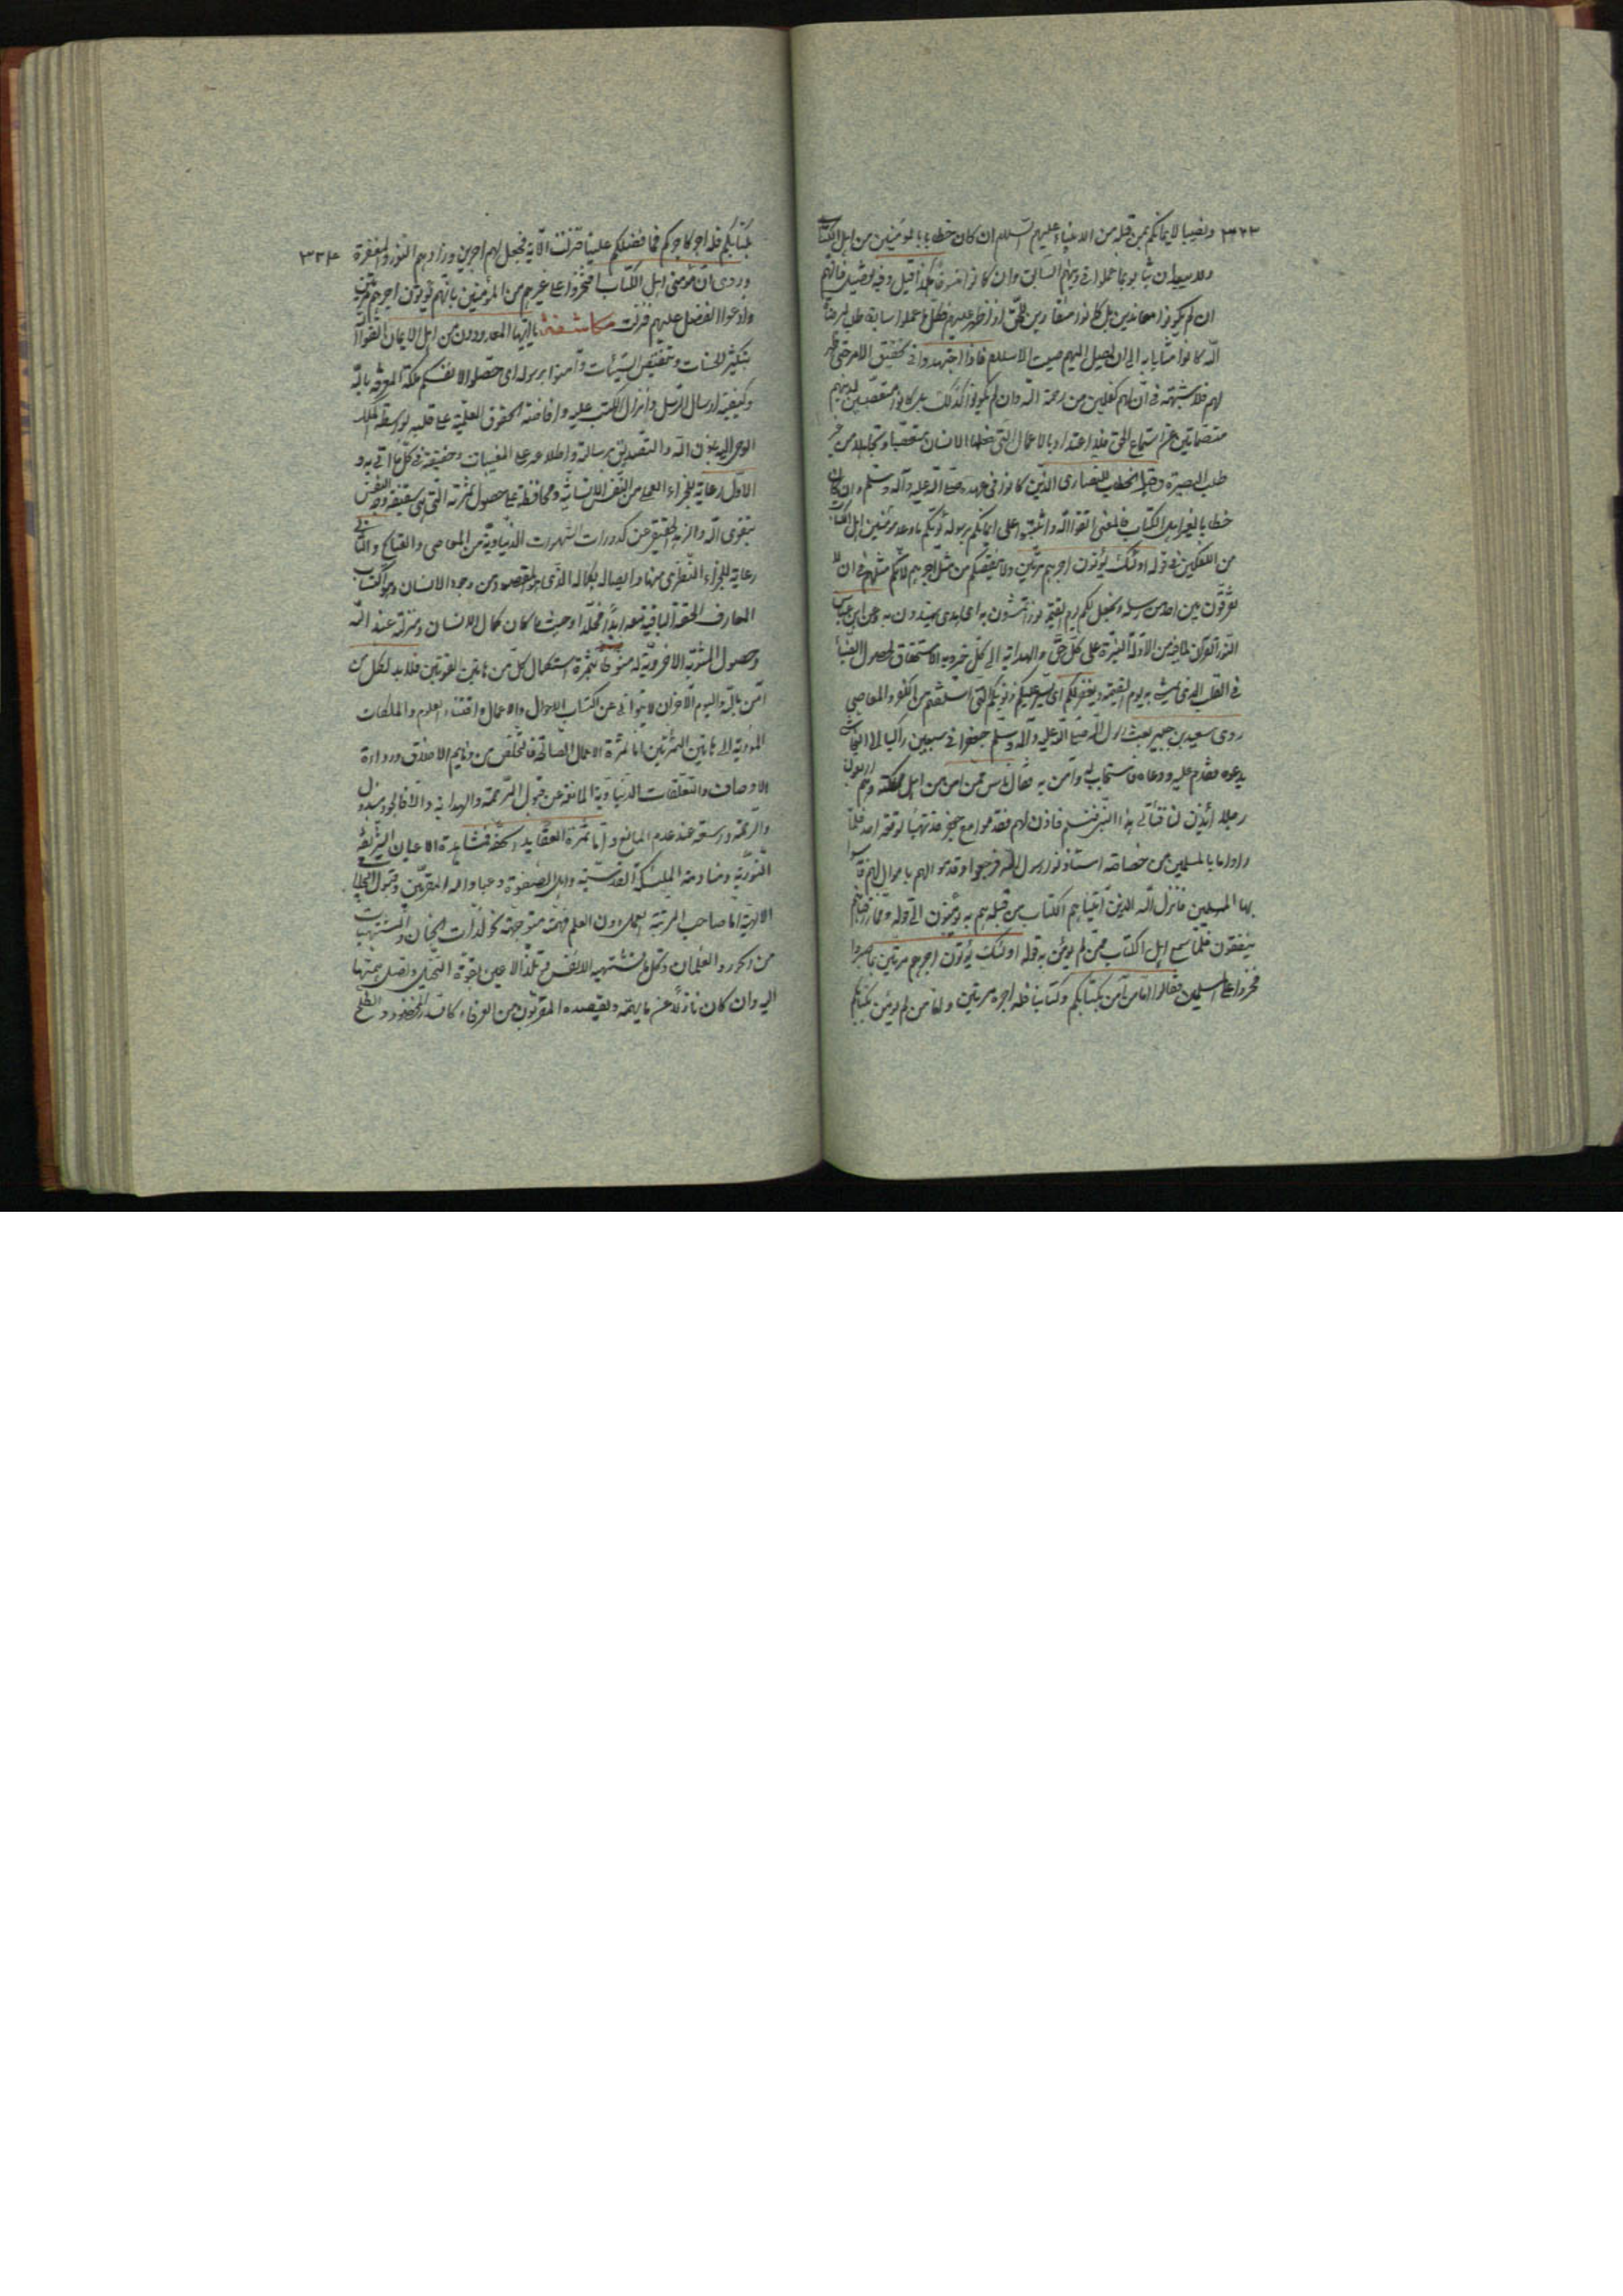 ٣٢٣ ونصيبا لايمانكم بمن قبله من الانبياء عليهم السلام ان كان خطابا بالمؤمنين من اهل الكتاب
ولا يبعد ان يثابوا بما عملوا في دينهم السابق وان كانوا منسوخا كذا قيل وفيه
ان لم يكونوا معاندين بل كانوا منقادين للحق
الله كانوا مثابا به الى ان يصل اليهم صيت الاسلام فاذا اجتهدوا في تحقيق الامر حتى ظهر
لهم فلا شبهة في ان لهم كفلين من رحمة الله وان لم يكونوا كذلك بل كانوا متعصبين لدينهم
عن استماع الحق فلا اعتداد بالاعمال التي يفعلها الانسان تعصبا وتجاهلا من غير
طلب البصيرة وقيل الخطاب للنصارى الذين كانوا في عهده صلى الله عليه وآله وسلم وان كان
خطابا لغير اهل الكتاب فالمعنى اتقوا الله واثبتوا على ايمانكم برسوله يؤتكم ما وعد مؤمنين اهل الكتاب
من الكفلين في قوله اولئك يؤتون اجرهم مرتين ولا ينقصكم من مثل اجرهم لانكم مثلهم في ان لا
تفرقون بين احد من رسله ويجعل لكم يوم القيمة نورا تمشون به اى هدى تهتدون به وعن ابن عباس
النور القرآن لما فيه من الادلة النيرة على كل حق والهداية الى كل خير وبه الاستحقاق لحصول الضياء
في القلب الذي يمشي به يوم القيمة ويغفر لكم اى يستر عليكم ذنوبكم التي اسلفتم من الكفر والمعاصي
روى سعيد بن جبير بعث رسول الله صلى الله عليه وآله وسلم جعفرا في سبعين راكبا الى النجاشي
يدعوه فقدم عليه ودعاه فاستجاب له وآمن به فقال ناس ممن آمن من اهل مملكته وهم اربعون
رجلا ائذن لنا فنأتي هذا النبي فنسلم به فاذن لهم فقدموا مع جعفر وقد تهيأ لوقعة احد فلما
راوا ما بالمسلمين من خصاصة استاذنوا رسول الله فرجعوا وقدموا لهم باموال لهم فآسوا
بها المسلمين فانزل الله الذين آتيناهم الكتاب من قبله هم به يؤمنون الى قوله ومما رزقناهم
ينفقون فلما سمع اهل الكتاب ممن لم يؤمن به قوله اولئك يؤتون اجرهم مرتين بما صبروا
فخروا على المسلمين فقالوا اما من آمن بكتابكم وكتابنا فله اجره مرتين واما من لم يؤمن بكتابكم
بكتابكم فله اجر كاجركم فما فضلكم علينا فنزلت الآية فجعل لهم اجرين وزادهم النور والمغفرة ٣٢٤
وروى ان مؤمني اهل الكتاب افتخروا على غيرهم من المؤمنين بانهم يؤتون اجرهم مرتين
وادعوا الفضل عليهم فنزلت مكاشفة يا ايها المعدودون من اهل الايمان اتقوا الله
بتكثير الحسنات وتنقيص السيئات وآمنوا برسوله اى حصلوا لانفسكم ملكة المعرفة بالله
وكيفية ارسال الرسل وانزال الكتب عليه وافاضة الحقوق العلمية على قلبه بواسطة الملك
الموحى اليه باذن الله والتصديق برسالته واطلاعه على المغيبات وحقيته في كل ما اتى به و
الاول رعاية للجزء العملي من النفس الانسانية ومحافظة على حصول ثمرته التي هي
بتقوى الله والزهد الحقيقي عن كدورات الشهوات الدنياوية من المعاصي والقبائح والثاني
رعاية للجزء النظري منها وايصاله بكماله الذي هو المقصود من وجود الانسان وهو اكتساب
المعارف الحقة الباقية معه ابدا مخلدا وحيث ما كان كمال الانسان ومنزلته عند الله
وحصول المثوبة الاخروية له منوطا بثمرة استكمال كل من هاتين القوتين فلا بد لكل من
آمن بالله واليوم الآخر ان لا يتوانى عن اكتساب الاحوال والاعمال واقتناء العلوم والملكات
المؤدية الى هاتين الثمرتين اما ثمرة الاعمال الصالحة فالتخلص من ذمايم الاخلاق ورداءة
الاوصاف والتعلقات الدنياوية المانعة عن قبول الرحمة والهداية والا فالجود مبذول
والرحمة واسعة عند عدم المانع واما ثمرة العقايد الحقة فمشاهدة الاعيان الشريفة
النورية ومنادمة الملئكة القدسية واهل الصفوة وعباد الله المقربين وقبول التجليات
الالهية اما صاحب المرتبة العمل دون العلم فهمته متوجهة نحو لذات الجنان والمشتهيات
من الحور والغلمان وكل ما تشتهيه الانفس وتلذ الاعين بقوة التخيل وتصل همتها
اليه وان كان نازلا عن ما يهمه ويقصده المقربون من العرفاء كالسدر المخضود والطلح